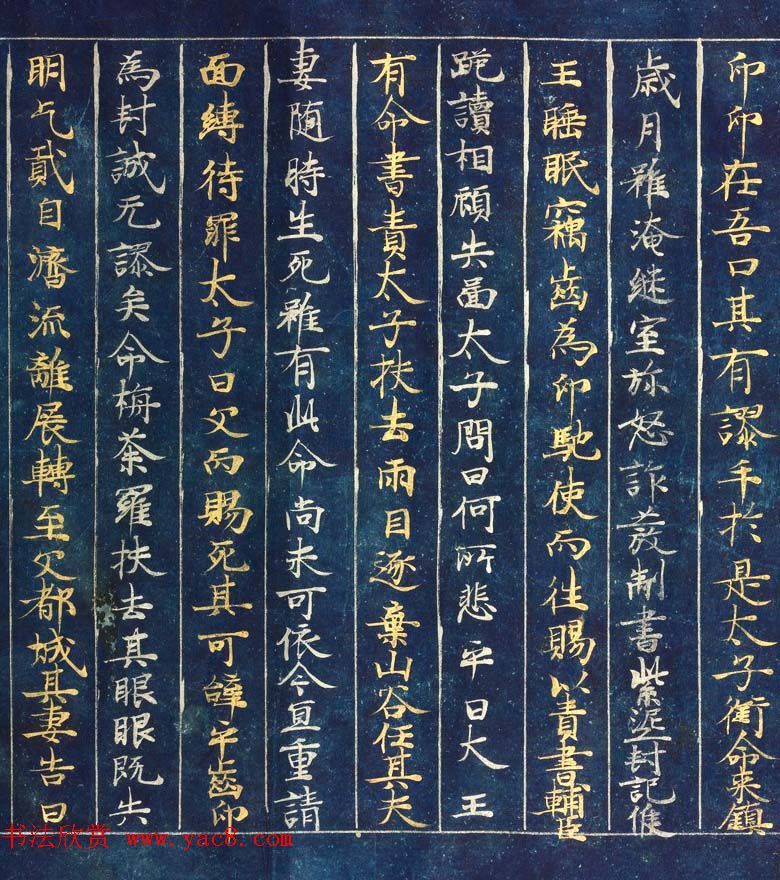 印印在吾口其有謬乎於是太子銜命来鎮
歳月雖淹継室弥怒詐發制書紫泥封記候
王睡眠竊齒為印馳使而往賜以責書輔臣
跪讀相顧失啚太子問曰何所悲乎曰大王
有命書責太子抉去兩目逐棄山谷任其夫
妻随時生死雖有此命尚未可依今冝重請
面縛待罪太子曰父而賜死其可辝乎齒印
為封誠无謬矣命栴荼羅抉去其眼眼既失
明乞貣自濟流離展轉至父都城其妻告曰
书法欣赏 www.yac8.com